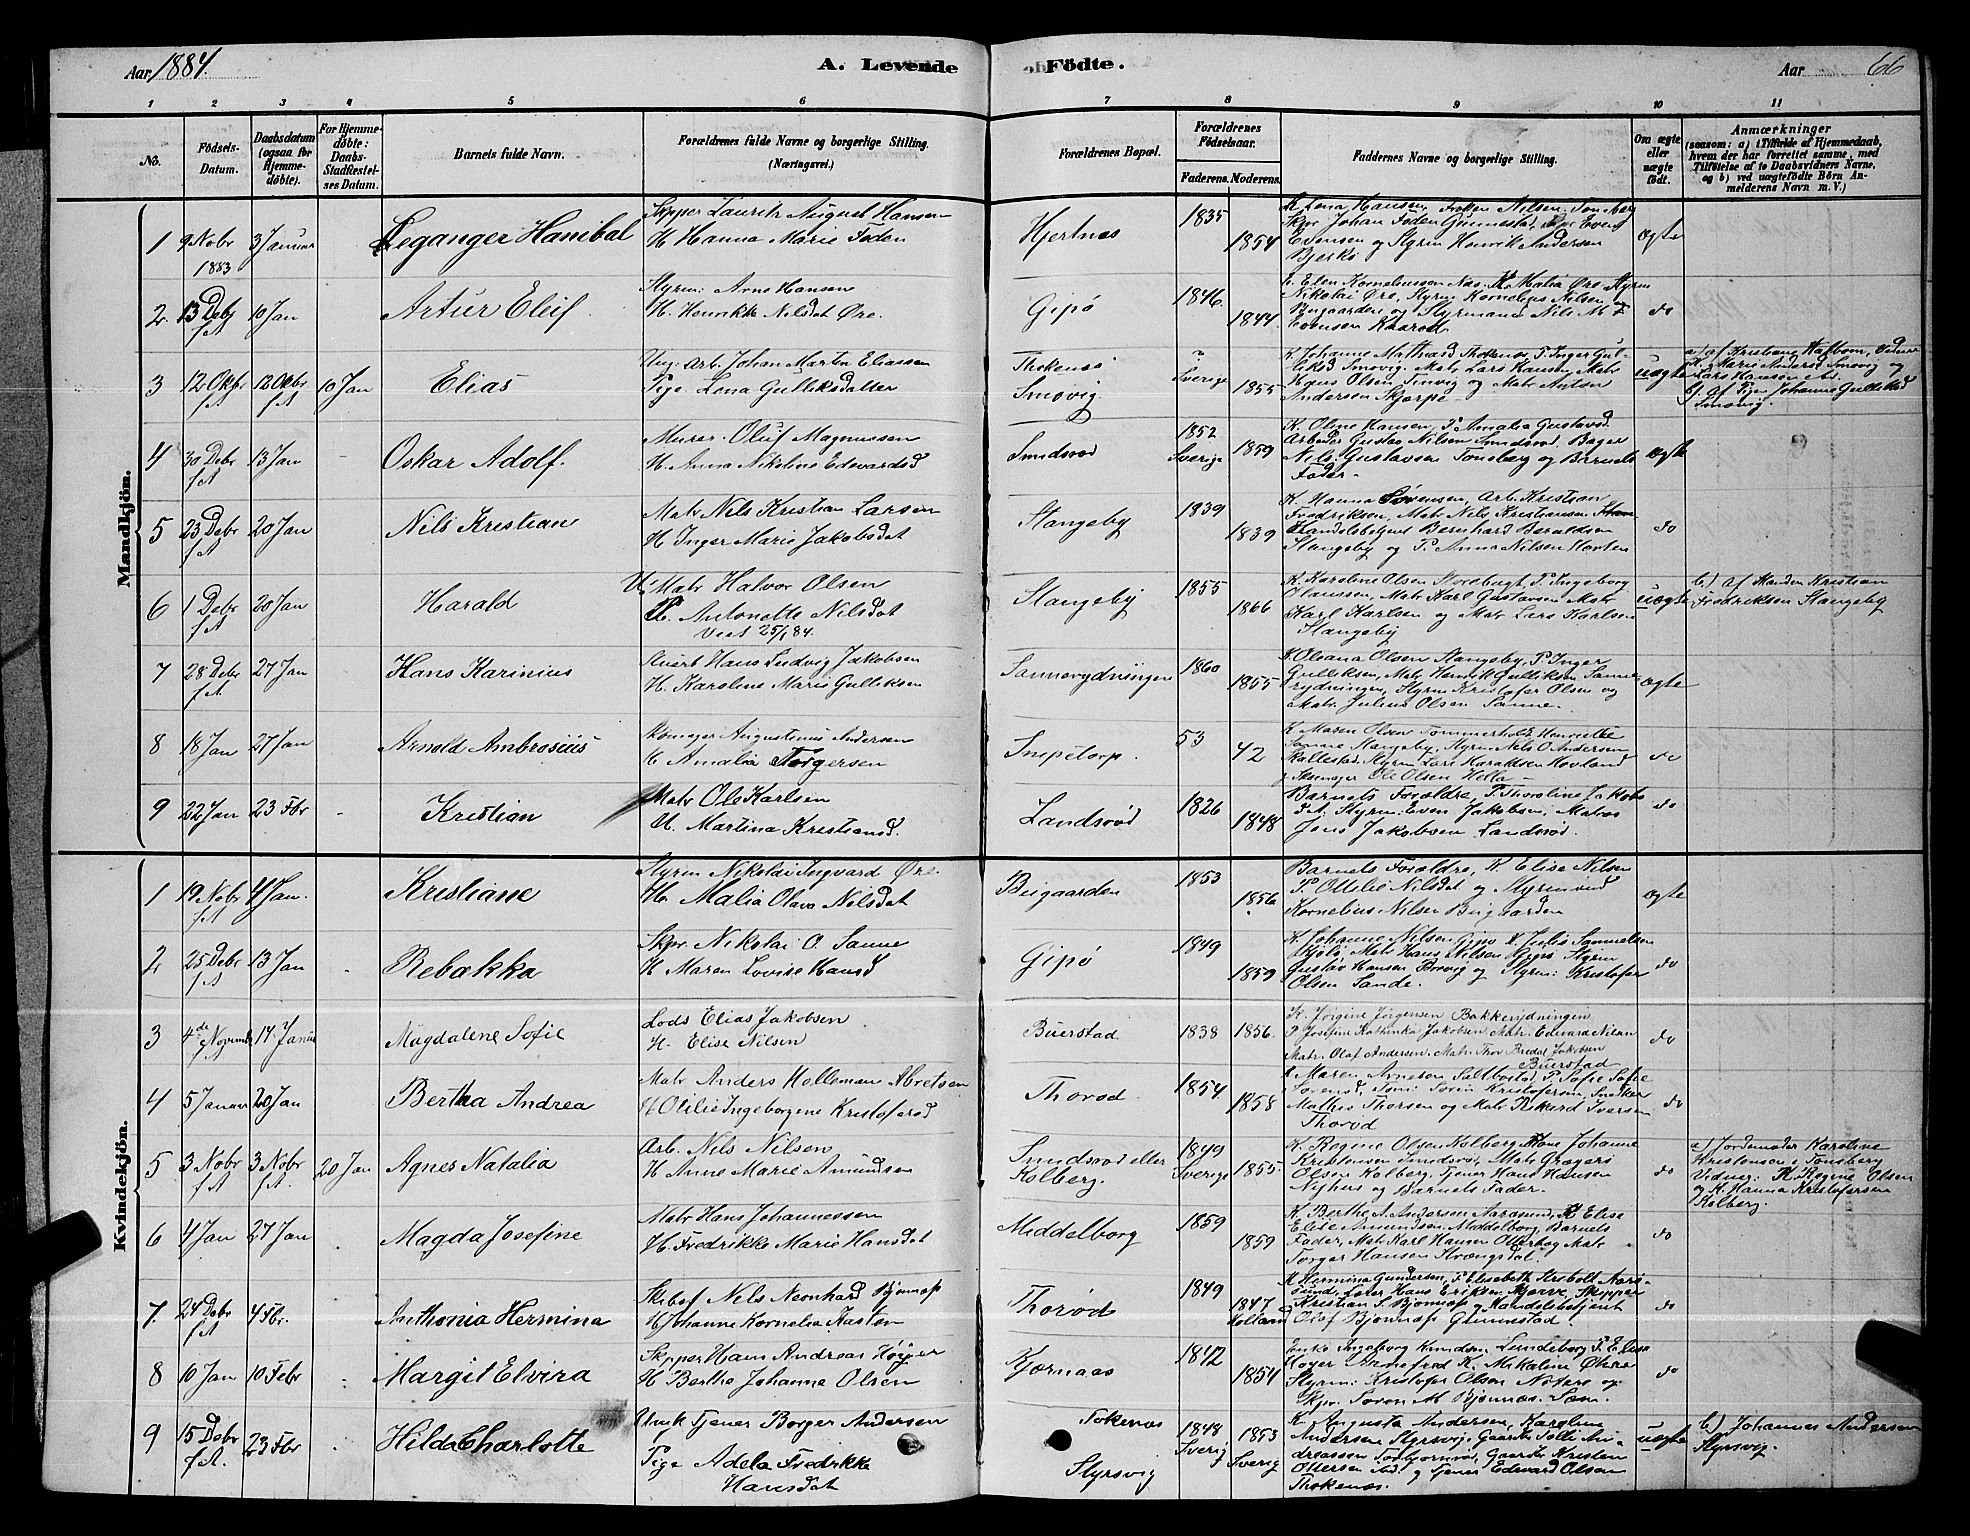 Aar 1884.
A. Levende
Födte.
Aar
66
1 2 3 4 5 6 7 8 9 10 11
No.
Födsels-Datum.
Daabsdatum (ogsaa for Hjemmedöbte).
For Hjemmedöbte: Daabs-Stadfæstelses Datum.
Barnets fulde Navn.
Forældrenes fulde Navne og borgerlige Stilling.
(Næringsvei.)
Forældrenes Bopæl.
Forældrenes Födselsaar.
Faderens. Moderens.
Faddernes Navne og borgerlige Stilling.
Om ægte eller uægte födt.
Anmærkninger
(saasom: a) i Tilfælde af Hjemmedaab, hvem der har forrettet samme, med Tilföielse af to Daabsvidners Navne, og b) ved uægtefödte Börn Anmelderens Navn m. V.)
Mandkjön.
1 9 Nobr 1883 3 Januar Leganger Hanibal
Skipper Laurits August Hansen
H. Hanna Marie Foden
Hjertnæs 1835 1854
K. Lena Hansen, Tönsberg
Skpr Johan Foden Gunnestad, Even
Evensen og Styrm Henrik Andersen
Bjerkö
ægte
2 13 Debr f.A 10 Jan Artur Eleif.
Styrm: Arne Hansen
H. Henrikke Nilsdat Öre.
Gipö 1846 1844
Nikolai Öre, Styrm Kornelius Nilsen
Evensen Kaarod.
do
3 12 Okt. f.A 12 Okbr f.A 10 Jan Elias
Ung. Arb. Johan Martin Eliassen
Pige Lena Gulliksdatter
Thokenæs
Smovig. Sverige 1855
Hans Olsen Smvig og Matr Anton
Andersen Skjerpe
uægte
b. af Pige Johanne Gulliksd
Smovig.
4 30 Debr f.A 13 Jan Oskar Adolf.
Murer Oluf Magnussen
H. Anna Nikoline Edvardsd
Smidsrod 1852 Sverige 1859
K. Oline Hansen, P. Amalia Gustavsd.
Arbeder Gustav Nilsen Smidsrod, Bager
Nils Gustavsen Tonsberg og Barnets
Fader.
ægte
5 23 Debr f.A 20 Jan Nils Kristian
Matr Nils Kristian Larsen
H Inger Marie Jakobsdat
Stangeby 1839 1839
K. Hanna Sörensen, Arb. Kristian
Fredriksen, Matr Nils Kristiansen
Handelsbetjent Bernhard Beraldsen
Stangeby og P. Anna Nilsen Horten
do
6 1 Debr f.A 20 Jan Harald
U. Matr Halvor Olsen
P. Antonette Nilsdat
viet 25/1 84.
Stangeby 1855 1866
K. Karoline Olsen Storebugt, P. Ingeborg
Olaussen, Matr Karl Gustavsen Matr
Karl Karlsen og Matr Lars Karlsen
Stangeby
uægte
b.) af Manden Kristian
Fredriksen Stangeby
7 28 Debr f.A 27 Jan Hans Karinius
Stuert Hans Ludvig Jakobsen
H. Karoline Marie Gulliksen
Sannerydningen 1860 1855
K. Oleana Olsen Stangeby, P. Inger
Gulliksen, Matr Henrik Gulliksen Sanne-
rydningen, Styrm Kristofer Olsen og
Matr. Julius Olsen Sanne.
ægte
8 18 Jan 27 Jan Arnold Ambrosius
Skomager Augustinus Andersen
H Amalia Torgersen
Snipetorp. 53 42
K Maren Olsen Tommerholt Henriette
Sanne Stangeby, Styrm Nils O Andersen
Rallestad, Styrm Lars Haraldsen Hovland
og Skomager Ole Olsen Hella
do
9 22 Jan 23 Fbr Kristian
Matr Ole Karlsen
H. Martina Kristiansd.
Landsröd 1826 1848
Barnets Forældre, P. Thoroline Jakobs
dt. Styrm Even Jakobsen, Matros
Jens Jakobsen Landsröd.
do
Kvindekjön.
1 19 Nobr f.A 4 Jan. Kristiane
Styrm Nikolai Ingvard Öre.
H. Malia Olava Nilsdat
Beigaarden 1853 1856
Barnets Forældre, K Elise Nilsen
P. Ottelie Nilsdat og Styrmand
Kornelius Nilsen Beigaarden
ægte
2 25 Debr f.A 13 Jan Rebækka
Skpr. Nikolai O. Sanne
H Maren Lovise Hansd
Gipö 1849 1859
K. Johanne Nilsen Gipö K Julie Samuelsen
Matr Hans Nilsen Gipö Styrm
Gustav Hansen Brevig og Styrm: Kristofer
Olsen Sande.
do
3 4de Novembr 14 Januar Magdalene Sofie
Lods Elias Jakobsen
H. Elise Nilsen
Buerstad 1838 1856.
K. Jörgine Jörgensen Bakkerydningen
P Josefine Kathinka Jakobsen, Matr. Edvard Nilsen
Matr. Olaf Andersen. Matr Thor Bredal Jakobsen
Buerstad
do
4 5 Januar 20 Jan Bertha Andrea
Matr Anders Kolleman Abretsen
H Otilie Ingeborgene Kristofersd
Thorod 1854 1858
K Maren Arnesen Saltbostad, P. Sofie Sofie
Sorensd, Tomr Soren Kristofersen, Snedker
Mathis Thorsen og Matr Rikard Iversen
Thorod
do
5 3 Nobr f.A 3 Nobr f.A. 20 Jan Agnes Natalia
Arb. Nils Nilsen
H Anne Marie Amundsen
Smidsrod eller
Kolberg. 1849 Sverige 1855
K. Regine Olsen Kolberg Kone Johanne
Kristensen Smidsrod, Matr Gragers
Olsen Kolberg, Tjener Hans Hansen
Nyhus og Barnets Fader.
do
a) Jordemoder Karoline
Kristensen i Tönsberg
Vidner: K Regine Olsen
og K. Hanna Kristofersen
Kolberg.
6 4 Jan 27 Jan Magda Josefine
Matr Hans Johannessen
H. Fredrikke Marie Hansdat
Middelborg 1859 1859
K. Berthe A. Andersen Aarøsund, K Elise
Elise Amundsen Middelborg, Barnets
Fader, Matr Karl Hansen Otterbog Matr
Torger Hansen Krængsdal
do
7. 24 Debr f.A 4 Fbr. Anthonia Hermina
Skibsf Nils Neonhard Bjönnæs
H Johanne Kornelia Kasten
Thorod 1849 1847 Holland
K Hermina Gundersen, P. Elisabeth Krebolt Aarö-
sund, Loser Hans Eriksen Kjærve, Skipper
Kristian F. Bjonnæs og Handelsbetjent
Olaf Bjonnæs Gunnestad.
do
8 10 Jan 10 Febr Margit Elvira
Skipper Hans Andreas Höyer
H Berthe Johanne Olsen
Kjærnaas 1842 1854
Enke Ingeborg Knudsen Lundeborg P. Elise
Höyer Arnefred K. Mikaline Ottere
Styrm: Kristofer Olsen Nöterö og
Skpr. Soren M Bjonnæs Sæm.
do
9 15 Debr f.A. 23 Fbr Hilda Charlotte
Ungk Tjener Borger Andersen
Pige Adela Fredrikke
Hansdat
Tokenæs
Styrsvig 1848 Sverig 1853 Sverig
K Augusta Andersen, Karoline
Andersen Styrsvig, Gaardbr Salli An-
dreassen Torbjornrod, Gaardbr Kristen
Ottersen Sud og Tjener Edevard Olsen
Thokenæs.
uægte
b.) Johannes Andersen
Styrsvig.